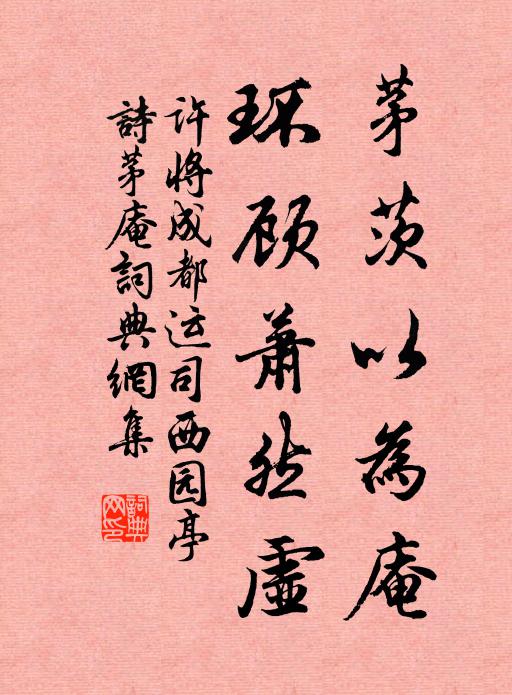 茅茨以為庵
环顾萧然虚
许将成都运司西园亭
詩茅庵詞典網集
詞典網印